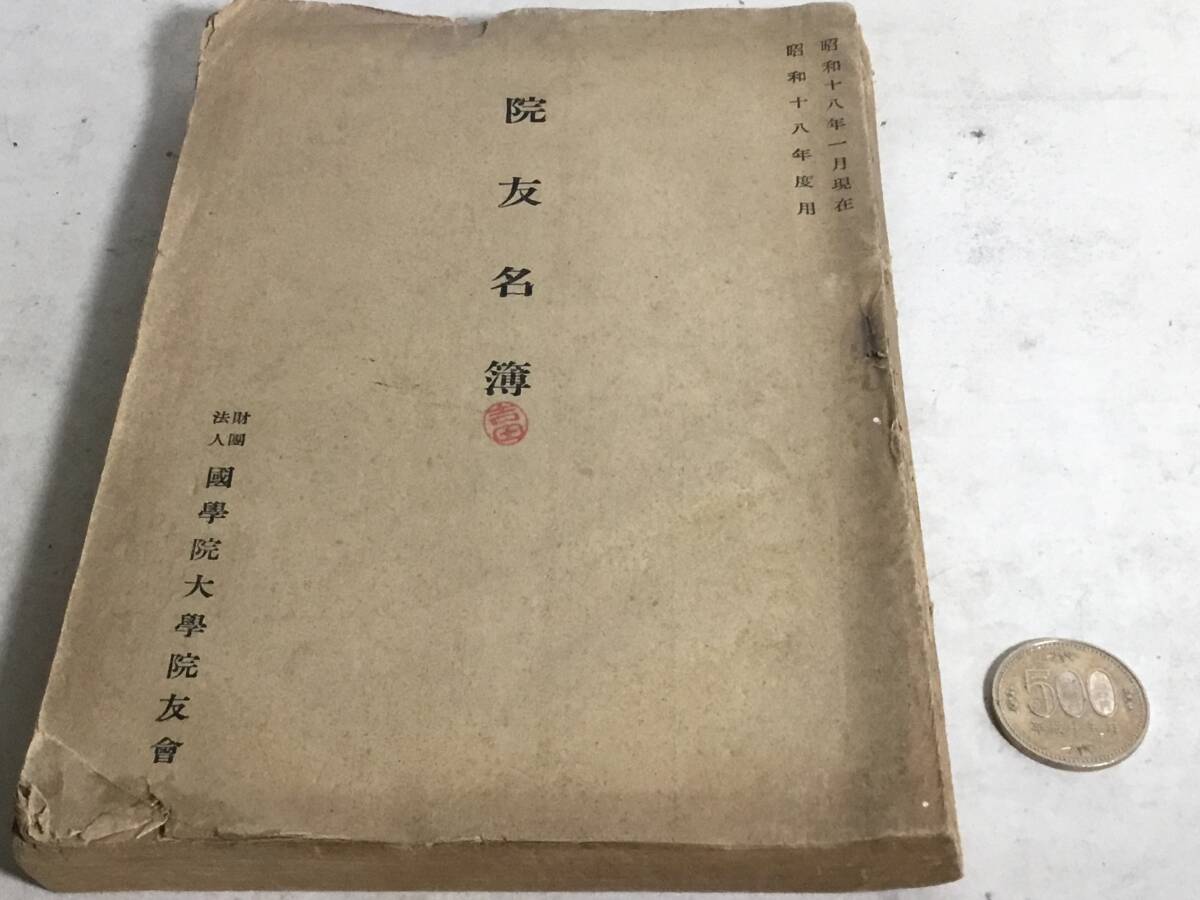 昭和十八年一月現在
昭和十八年度用
院友名簿
吉田
財團
法人
國學院大學院友會
500